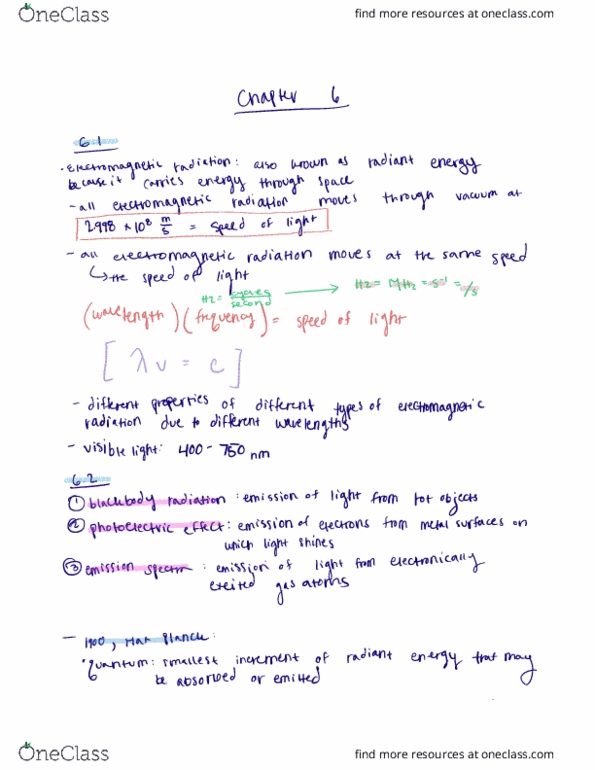 OneClass find more resources at oneclass.com
Chapter 6
6.1
· Electromagnetic radiation: also known as radiant energy
because it carries energy through space
- all electromagnetic radiation moves through vacuum at
2.998 × 10⁸ m/s = speed of light
- all electromagnetic radiation moves at the same speed
↳ the speed of light
Hz = cycles/second → Hz = MHz = s⁻¹ = /s
(wavelength)(frequency) = speed of light
[λν = c]
- different properties of different types of electromagnetic
radiation due to different wavelengths
- visible light: 400 - 750 nm
6.2
① blackbody radiation: emission of light from hot objects
② photoelectric effect: emission of electrons from metal surfaces on
which light shines
③ emission spectra: emission of light from electronically
excited gas atoms
- 1900, Max Planck:
· quantum: smallest increment of radiant energy that may
be absorbed or emitted
OneClass find more resources at oneclass.com